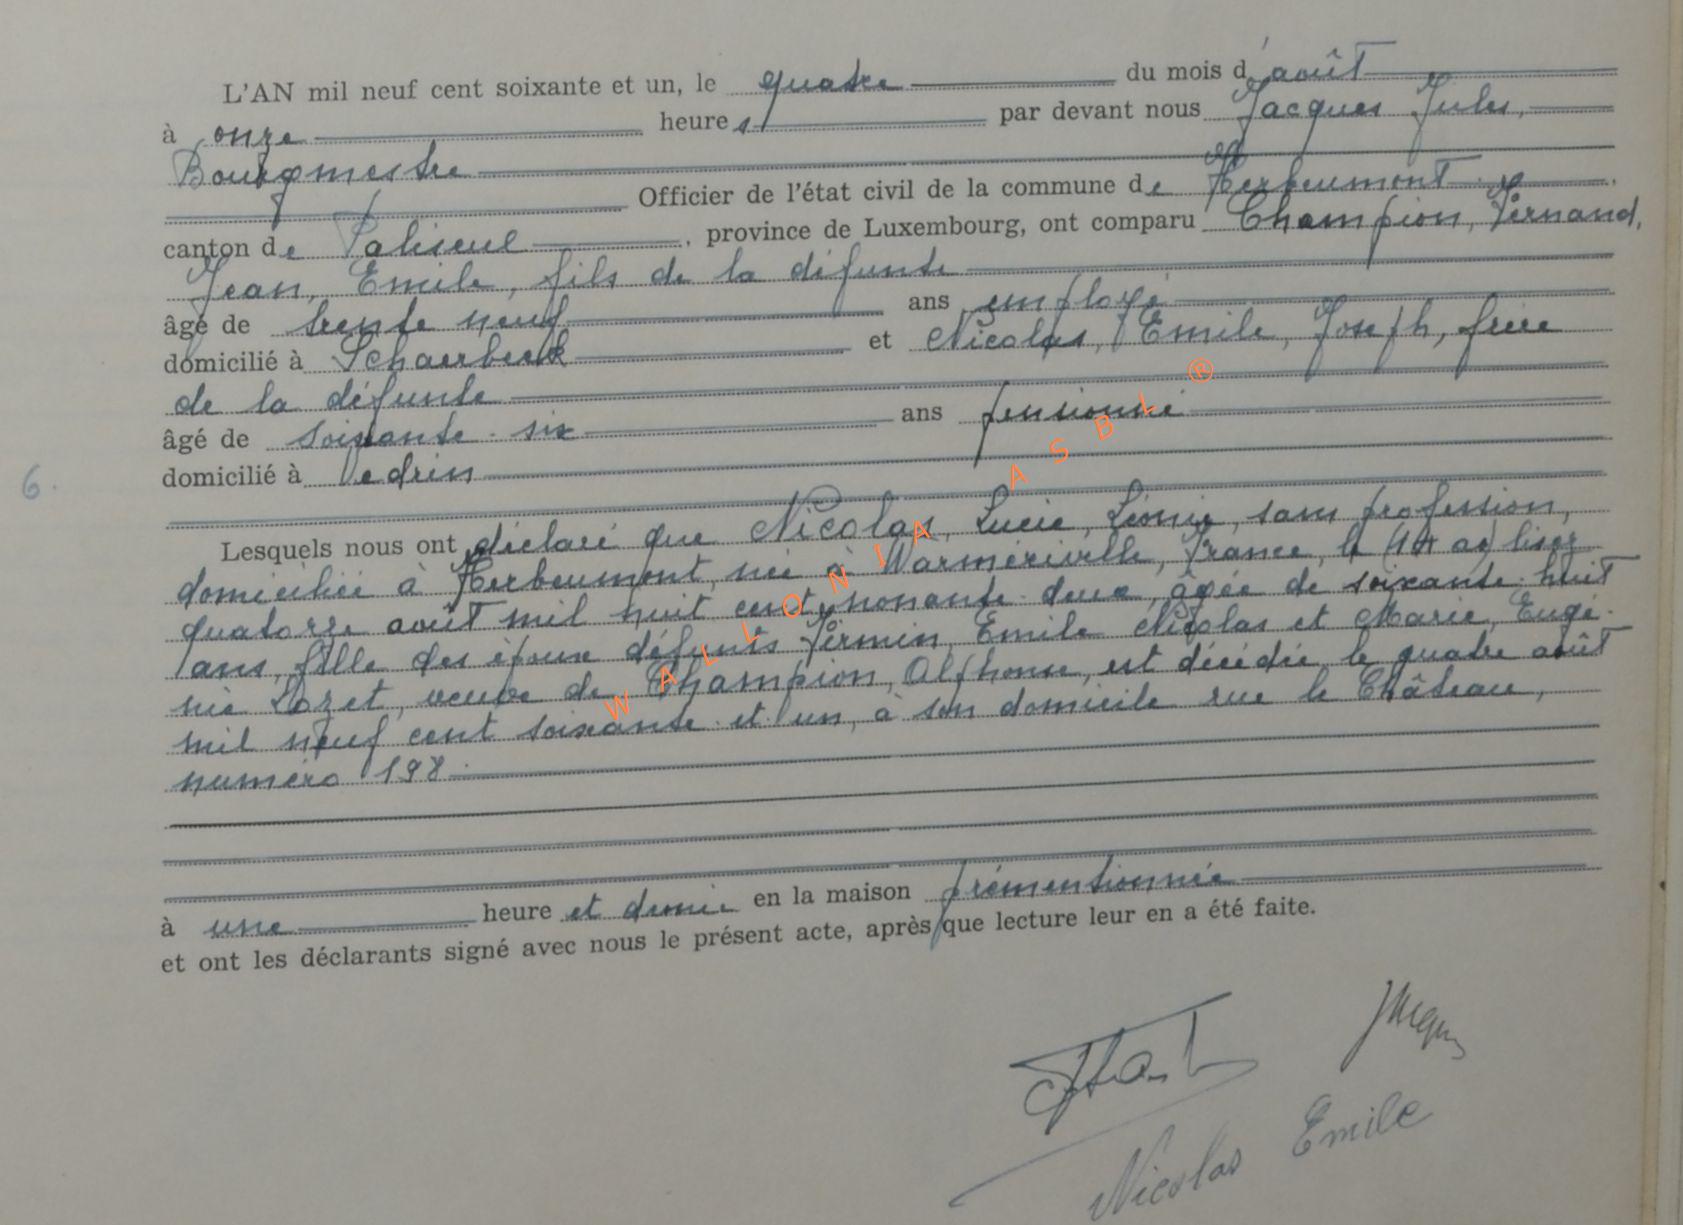 L'AN mil neuf cent soixante et un, le quatre du mois d'août
à onze heures par devant nous Jacques Jules,
Bourgmestre
Officier de l'état civil de la commune de Herbeumont
canton de Paliseul, province de Luxembourg, ont comparu Champion, Fernand,
Jean, Emile, fils de la défunte
âgé de trente neuf ans employé
domicilié à Schaerbeek et Nicolas, Emile, Joseph, frère
de la défunte
âgé de soixante-six ans pensionné
domicilié à Vedrin
6.
Lesquels nous ont déclaré que Nicolas, Lucie, Léonie, sans profession,
domiciliée à Herbeumont, née à Warmériville, France, le lisez
quatorze août mil huit cent nonante-deux, âgée de soixante-huit
ans, fille des époux défunts Firmin, Emile Nicolas et Marie, Eugé-
nie Lozet, veuve de Champion, Alphonse, est décédée le quatre août
mil neuf cent soixante et un, à son domicile rue le Château,
numéro 198.
à une heure et demie en la maison prémentionnée
et ont les déclarants signé avec nous le présent acte, après que lecture leur en a été faite.
Jacques
Nicolas Emile
WALLONIA ASBL ®